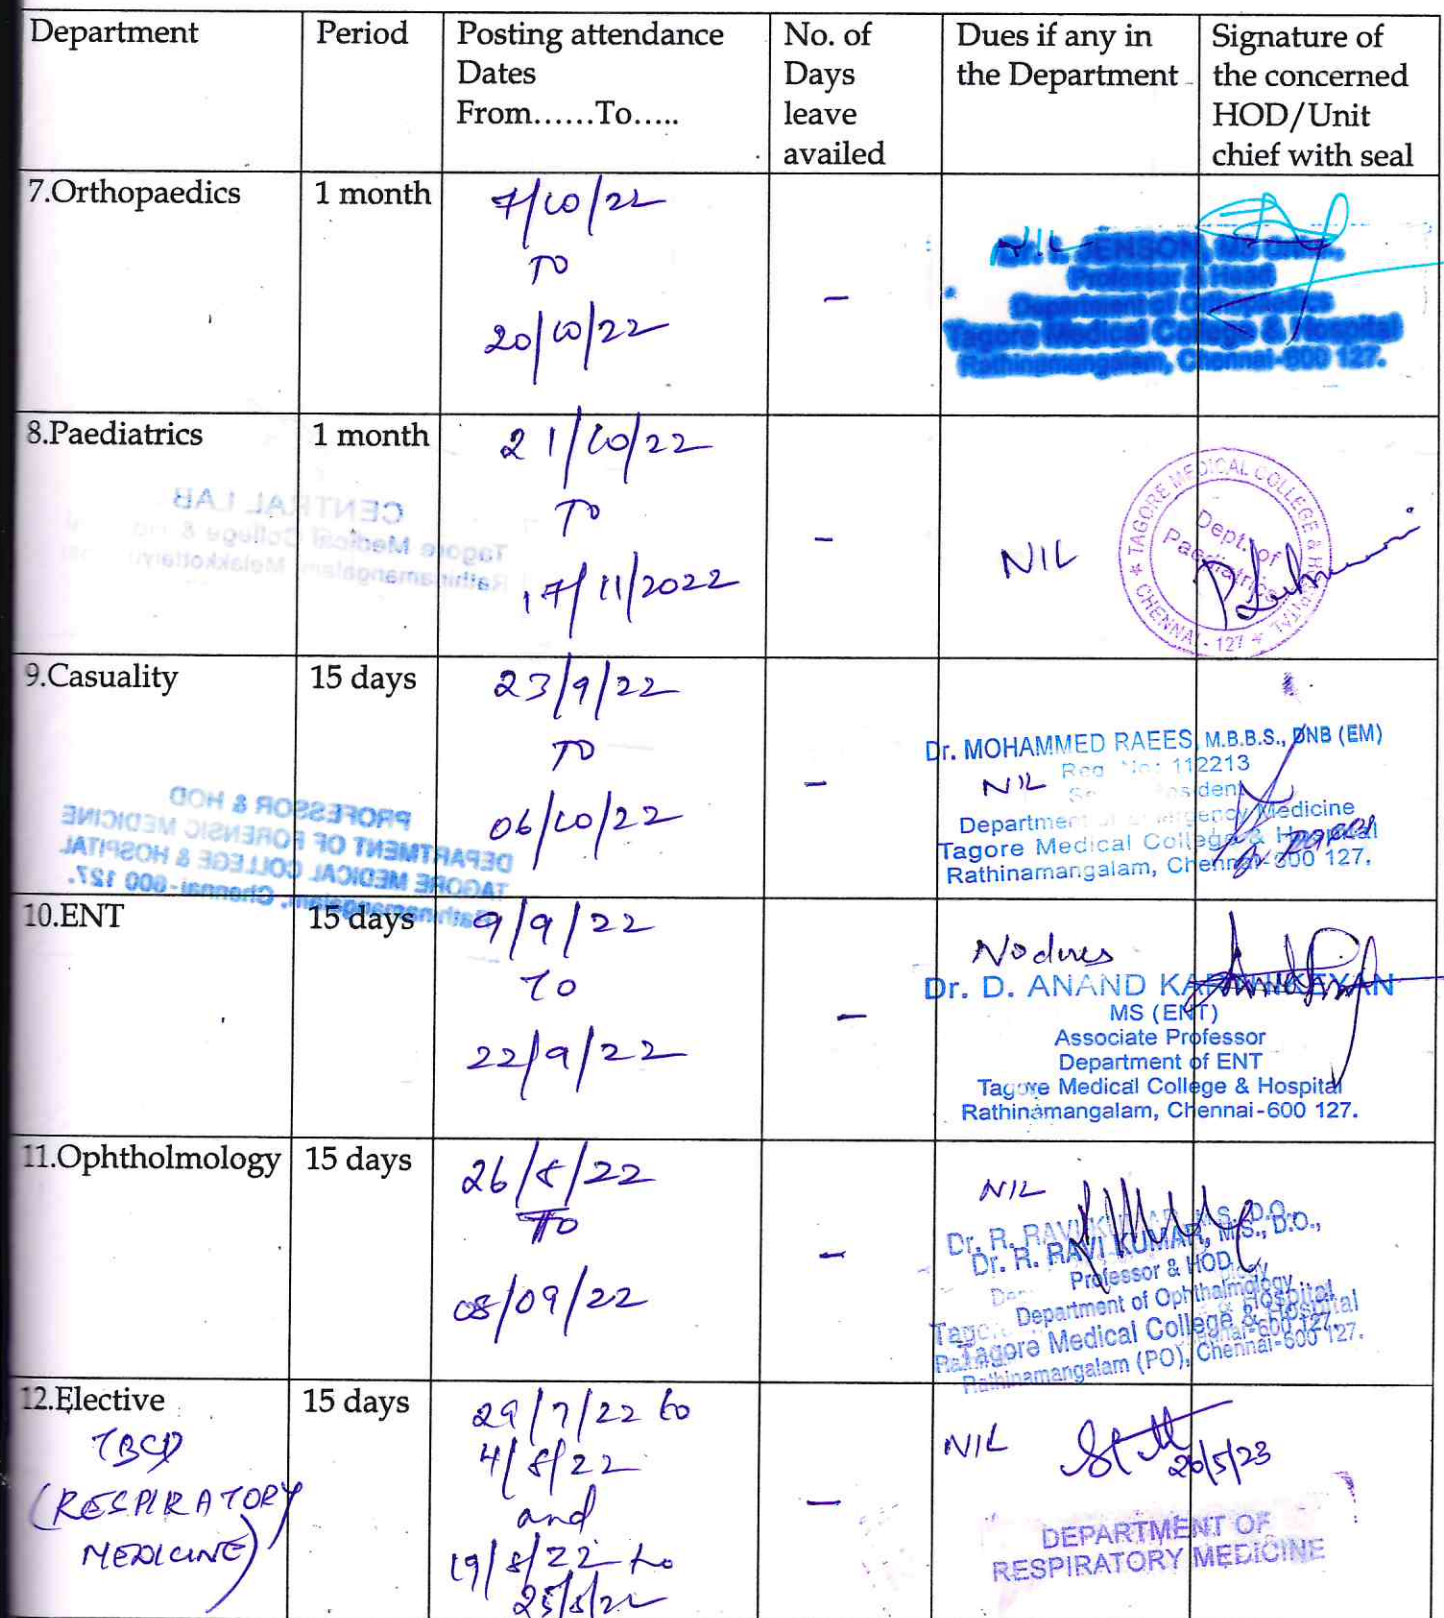 Department
Period
Posting attendance
Dates
From......To.....
No. of
Days
leave
availed
Dues if any in
the Department
Signature of
the concerned
HOD/Unit
chief with seal
7.Orthopaedics
1 month
7/10/22
TO
20/10/22
-
NIL
JENSON
Professor & Head
Department of Orthopaedics
Tagore Medical College & Hospital
Rathinamangalam, Chennai-600 127.
8.Paediatrics
1 month
21/10/22
To
17/11/2022
-
NIL
TAGORE MEDICAL COLLEGE & HOSPITAL
CHENNAI - 127
Dept. of
Paediatrics
CENTRAL LAB
Tagore Medical College &
Rathinamangalam, Melakkottaiyur
9.Casuality
15 days
23/9/22
TO
06/10/22
-
Dr. MOHAMMED RAEES, M.B.B.S., DNB (EM)
Reg No: 112213
NIL
Department of Emergency Medicine
Tagore Medical College & Hospital
Rathinamangalam, Chennai-600 127.
PROFESSOR & HOD
DEPARTMENT OF FORENSIC MEDICINE
TAGORE MEDICAL COLLEGE & HOSPITAL
Rathinamangalam, Chennai-600 127.
10.ENT
15 days
9/9/22
To
22/9/22
-
No dues
Dr. D. ANAND KARTHIKEYAN
MS (ENT)
Associate Professor
Department of ENT
Tagore Medical College & Hospital
Rathinamangalam, Chennai-600 127.
11.Ophtholmology
15 days
26/8/22
To
08/09/22
-
NIL
Dr. R. RAVI KUMAR, M.S., D.O.,
Professor & HOD
Department of Ophthalmology
Tagore Medical College & Hospital
Rathinamangalam (PO), Chennai-600 127.
12.Elective
TBCD
(RESPIRATORY
MEDICINE)
15 days
29/7/22 to
4/8/22
and
19/8/22 to
25/8/22
-
NIL
26/5/23
DEPARTMENT OF
RESPIRATORY MEDICINE